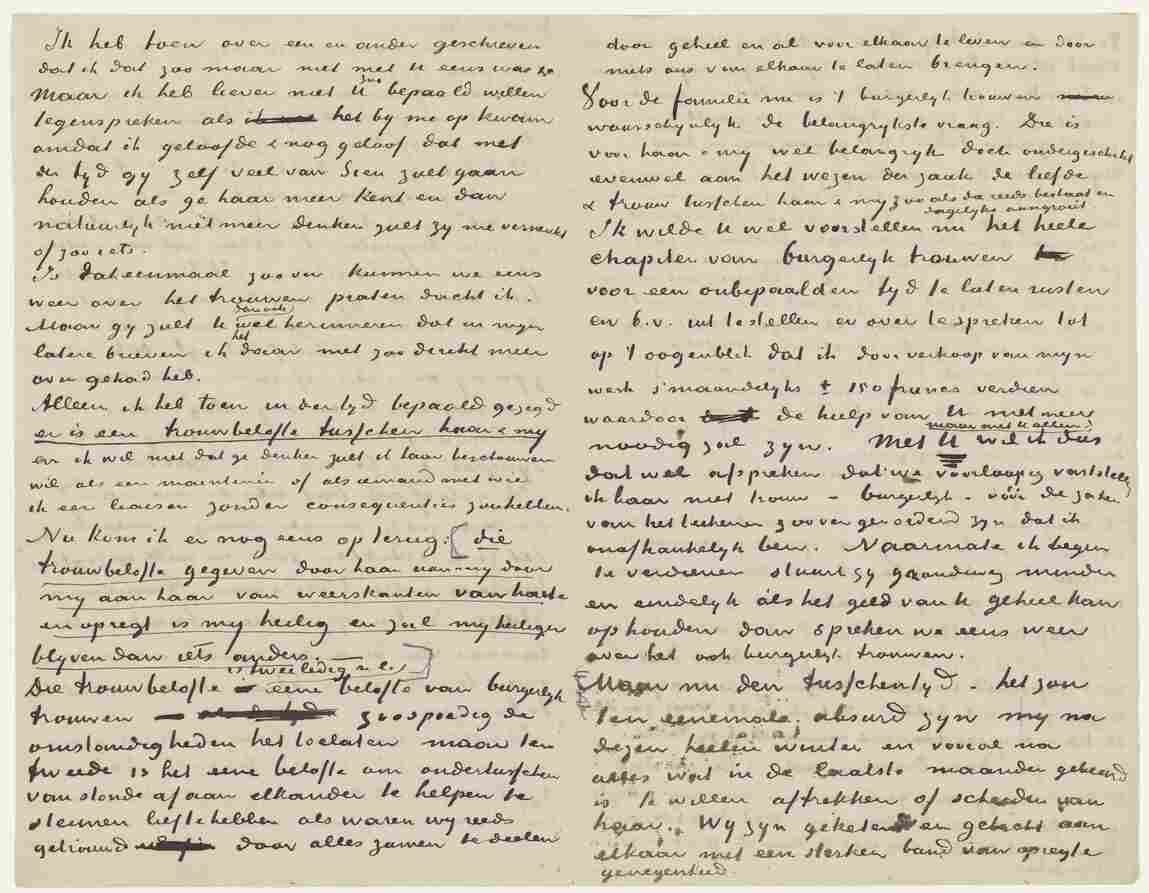 Ik heb toen over een en ander geschreven
dat ik dat zoo maar niet met U eens was &c
Maar ik heb liever niet U zoo bepaald willen
tegenspreken als het by me op kwam
omdat ik geloofde & nog geloof dat met
der tyd gy zelf veel van Sien zult gaan
houden als ge haar meer kent en dan
natuurlyk niet meer denken zult zy me verneukt
of zoo iets.
Is dat eenmaal zoo ver kunnen we eens
weer over het trouwen praten dacht ik.
Maar gy zult U dan ook wel herinneren dat in myn
latere brieven ik het daar niet zoo direkt meer
over gehad heb.
Alleen ik heb toen in der tyd bepaald gezegd
er is een trouwbelofte tusschen haar & my
en ik wil niet dat ge denken zult ik haar beschouwen
wil als een maintenée of als iemand met wie
ik een liaison zonder consequenties zou hebben.
Nu kom ik er nog eens op terug: [die
trouwbelofte gegeven door haar aan my door
my aan haar van weerskanten van harte
en opregt is my heilig en zal my heiliger
blyven dan iets anders.]
Die trouwbelofte is tweeledig n.l. eene belofte van burgerlyk
trouwen zoo spoedig de
omstandigheden het toelaten maar ten
tweede is het eene belofte om ondertusschen
van stonde af aan elkander te helpen te
steunen lief te hebben als waren wy reeds
getrouwd door alles zamen te deelen
door geheel en al voor elkaar te leven en door
niets ons van elkaar te laten brengen.
Voor de familie nu is 't burgerlyk trouwen
waarschynlyk de belangrykste vraag. Die is
voor haar & my wel belangryk doch ondergeschikt
evenwel aan het wezen der zaak de liefde
& trouw tusschen haar & my zoo als die reeds bestaat en
dagelyks aangroeit
Ik wilde U wel voorstellen nu het heele
chapiter van burgerlyk trouwen
voor een onbepaalden tyd te laten rusten
en b.v. uit te stellen er over te spreken tot
op 't oogenblik dat ik door verkoop van myn
werk s'maandelyks ± 150 francs verdien
waardoor de hulp van U niet meer
noodig zal zyn. Met U maar met U alleen wil ik dus
dat wel afspreken dat we voorloopig vaststellen
ik haar niet trouw – burgerlyk – vóór de zaken
van het teekenen zoo ver gevorderd zyn dat ik
onafhankelyk ben. Naarmate ik begin
te verdienen stuurt gy gaandeweg minder
en eindelyk als het geld van U geheel kan
ophouden dan spreken we eens weer
over het ook burgerlyk trouwen.
Maar nu den tusschentyd – het zou
ten eenemale absurd zyn my na
dezen heelen winter en vooral na
alles wat in de laatste maanden gebeurd
is te willen aftrekken of scheiden van
haar. Wy zyn geketend en gehecht aan
elkaar met een sterken band van opregte
genegenheid.